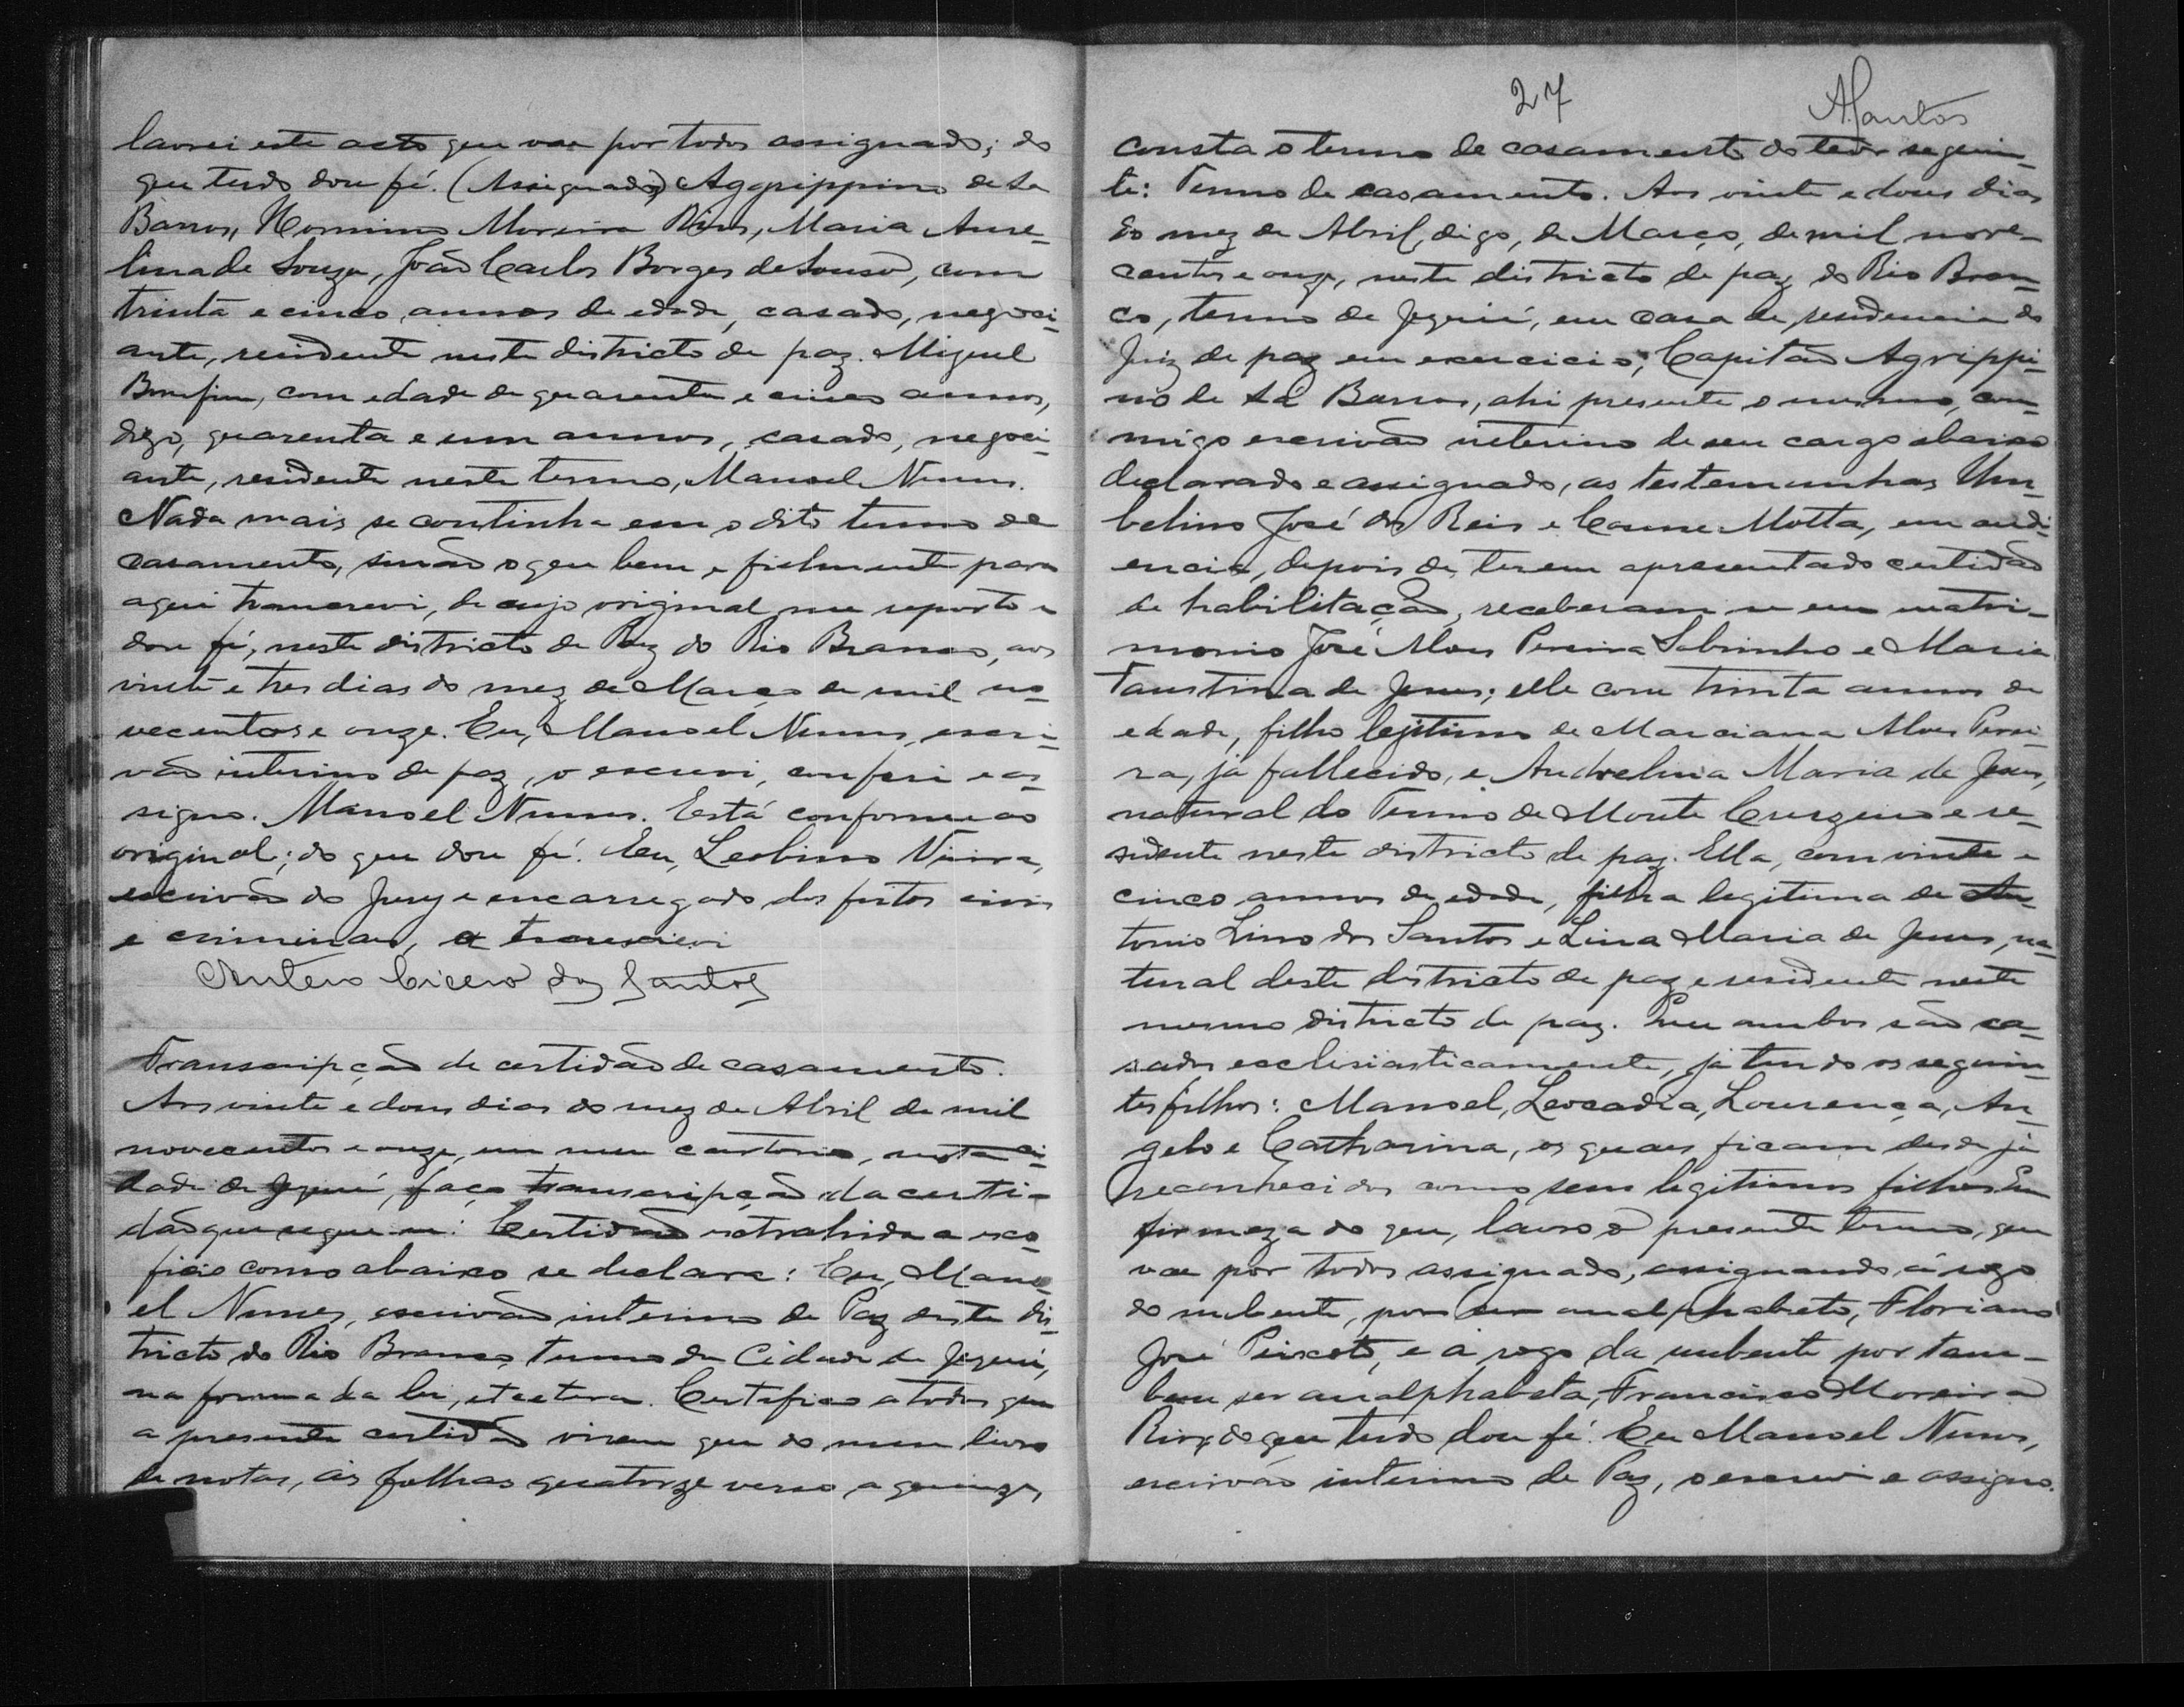 lavrei este acto que vae por todos assignado; do
que tudo dou fé. (Assignados) Aggrippino de Sa
Barros, Hormino Moreira Rios, Maria Aure-
lina de Souza, João Carlos Borges de Souso, com
trinta e cinco annos de edade, casado, negoci-
ante, residente neste districto de paz. Miguel
Bomfim, com edade de quarenta e cinco annos,
digo, quarenta e um annos, casado, negoci-
ante, residente neste termo, Manoel Nunes.
Nada mais se continha em o dito termo de
casamento, sinão o que bem e fielmente para
aqui transcrevi, de cujo original me reporto e
dou fé, neste districto de Paz do Rio Branco, aos
vinte e tres dias do mez de Março de mil no-
vecentos e onze. Eu, Manoel Nunes, escri-
vão interino de paz, o escrevi, conferi e as-
signo. Manoel Nunes. Está conforme ao
original; do que dou fé. Eu, Leobino Vieira,
escrivão do Jury e encarregado dos feitos civis
e criminaes, a transcrevi
Antero Cicero dos Santos
Transcripção de certidão de casamento.
Aos vinte e dous dias do mez de Abril de mil
novecentos e onze, em meu cartorio, nesta ci-
dade de Jequié, faço transcripção da certi-
dão que segue-se: Certidão extrahida a exo-
ficio como abaixo se declara: Eu, Mano-
el Nunes, escrivão interino de Paz deste dis-
tricto do Rio Branco, termo da Cidade de Jequié,
na forma da lei, etcetera. Certifico a todos que
a presente certidão virem que do meu livro
de notas, ás folhas quatorze verso a quinze,
27
ASantos
consta o termo de casamento do teor seguin-
te: Termo de casamento. Aos vinte e dous dias
do mez de Abril, digo, de Março, de mil nove-
centos e onze, neste districto de paz do Rio Bran-
co, termo de Jequié, em casa de residencia do
Juiz de paz em exercicio, Capitão Agrippi-
no de Sá Barros, ahi presente o mesmo, com-
migo escrivão interino de seu cargo abaixo
declarado e assignado, as testemunhas Um-
belino José dos Reis e Cosme Motta, em audi-
encia, depois de terem apresentado certidão
de habilitação, receberam-se em matri-
monio José Alves Pereira Sobrinho e Maria
Faustina de Jesus; elle com trinta annos de
edade, filho legitimo de Marciana Alves Perei-
ra, já fallecido, e Andrelina Maria de Jesus,
natural do Termo de Monte Cruzeiro e re-
sidente neste districto de paz. Ella, com vinte e
cinco annos de edade, filha legitima de An-
tonio Lino dos Santos e Lina Maria de Jesus, na-
tural deste districto de paz e residente neste
mesmo districto de paz. Que ambos são ca-
sados ecclesiasticamente, já tendo os seguin-
tes filhos: Manoel, Leocadia, Lourença, An-
gelo e Catharina, os quaes ficam desde já
reconhecidos como seus legitimos filhos. Em
firmeza do que, lavro o presente termo, que
vae por todos assignado, assignando á rogo
do nubente, por ser analphabeto, Floriano
José Peixoto, e á rogo da nubente por tam-
bem ser analphabeta, Francisco Moreira
Rios, do que tudo dou fé. Eu Manoel Nunes,
escrivão interino de Paz, o escrevi e assigno.